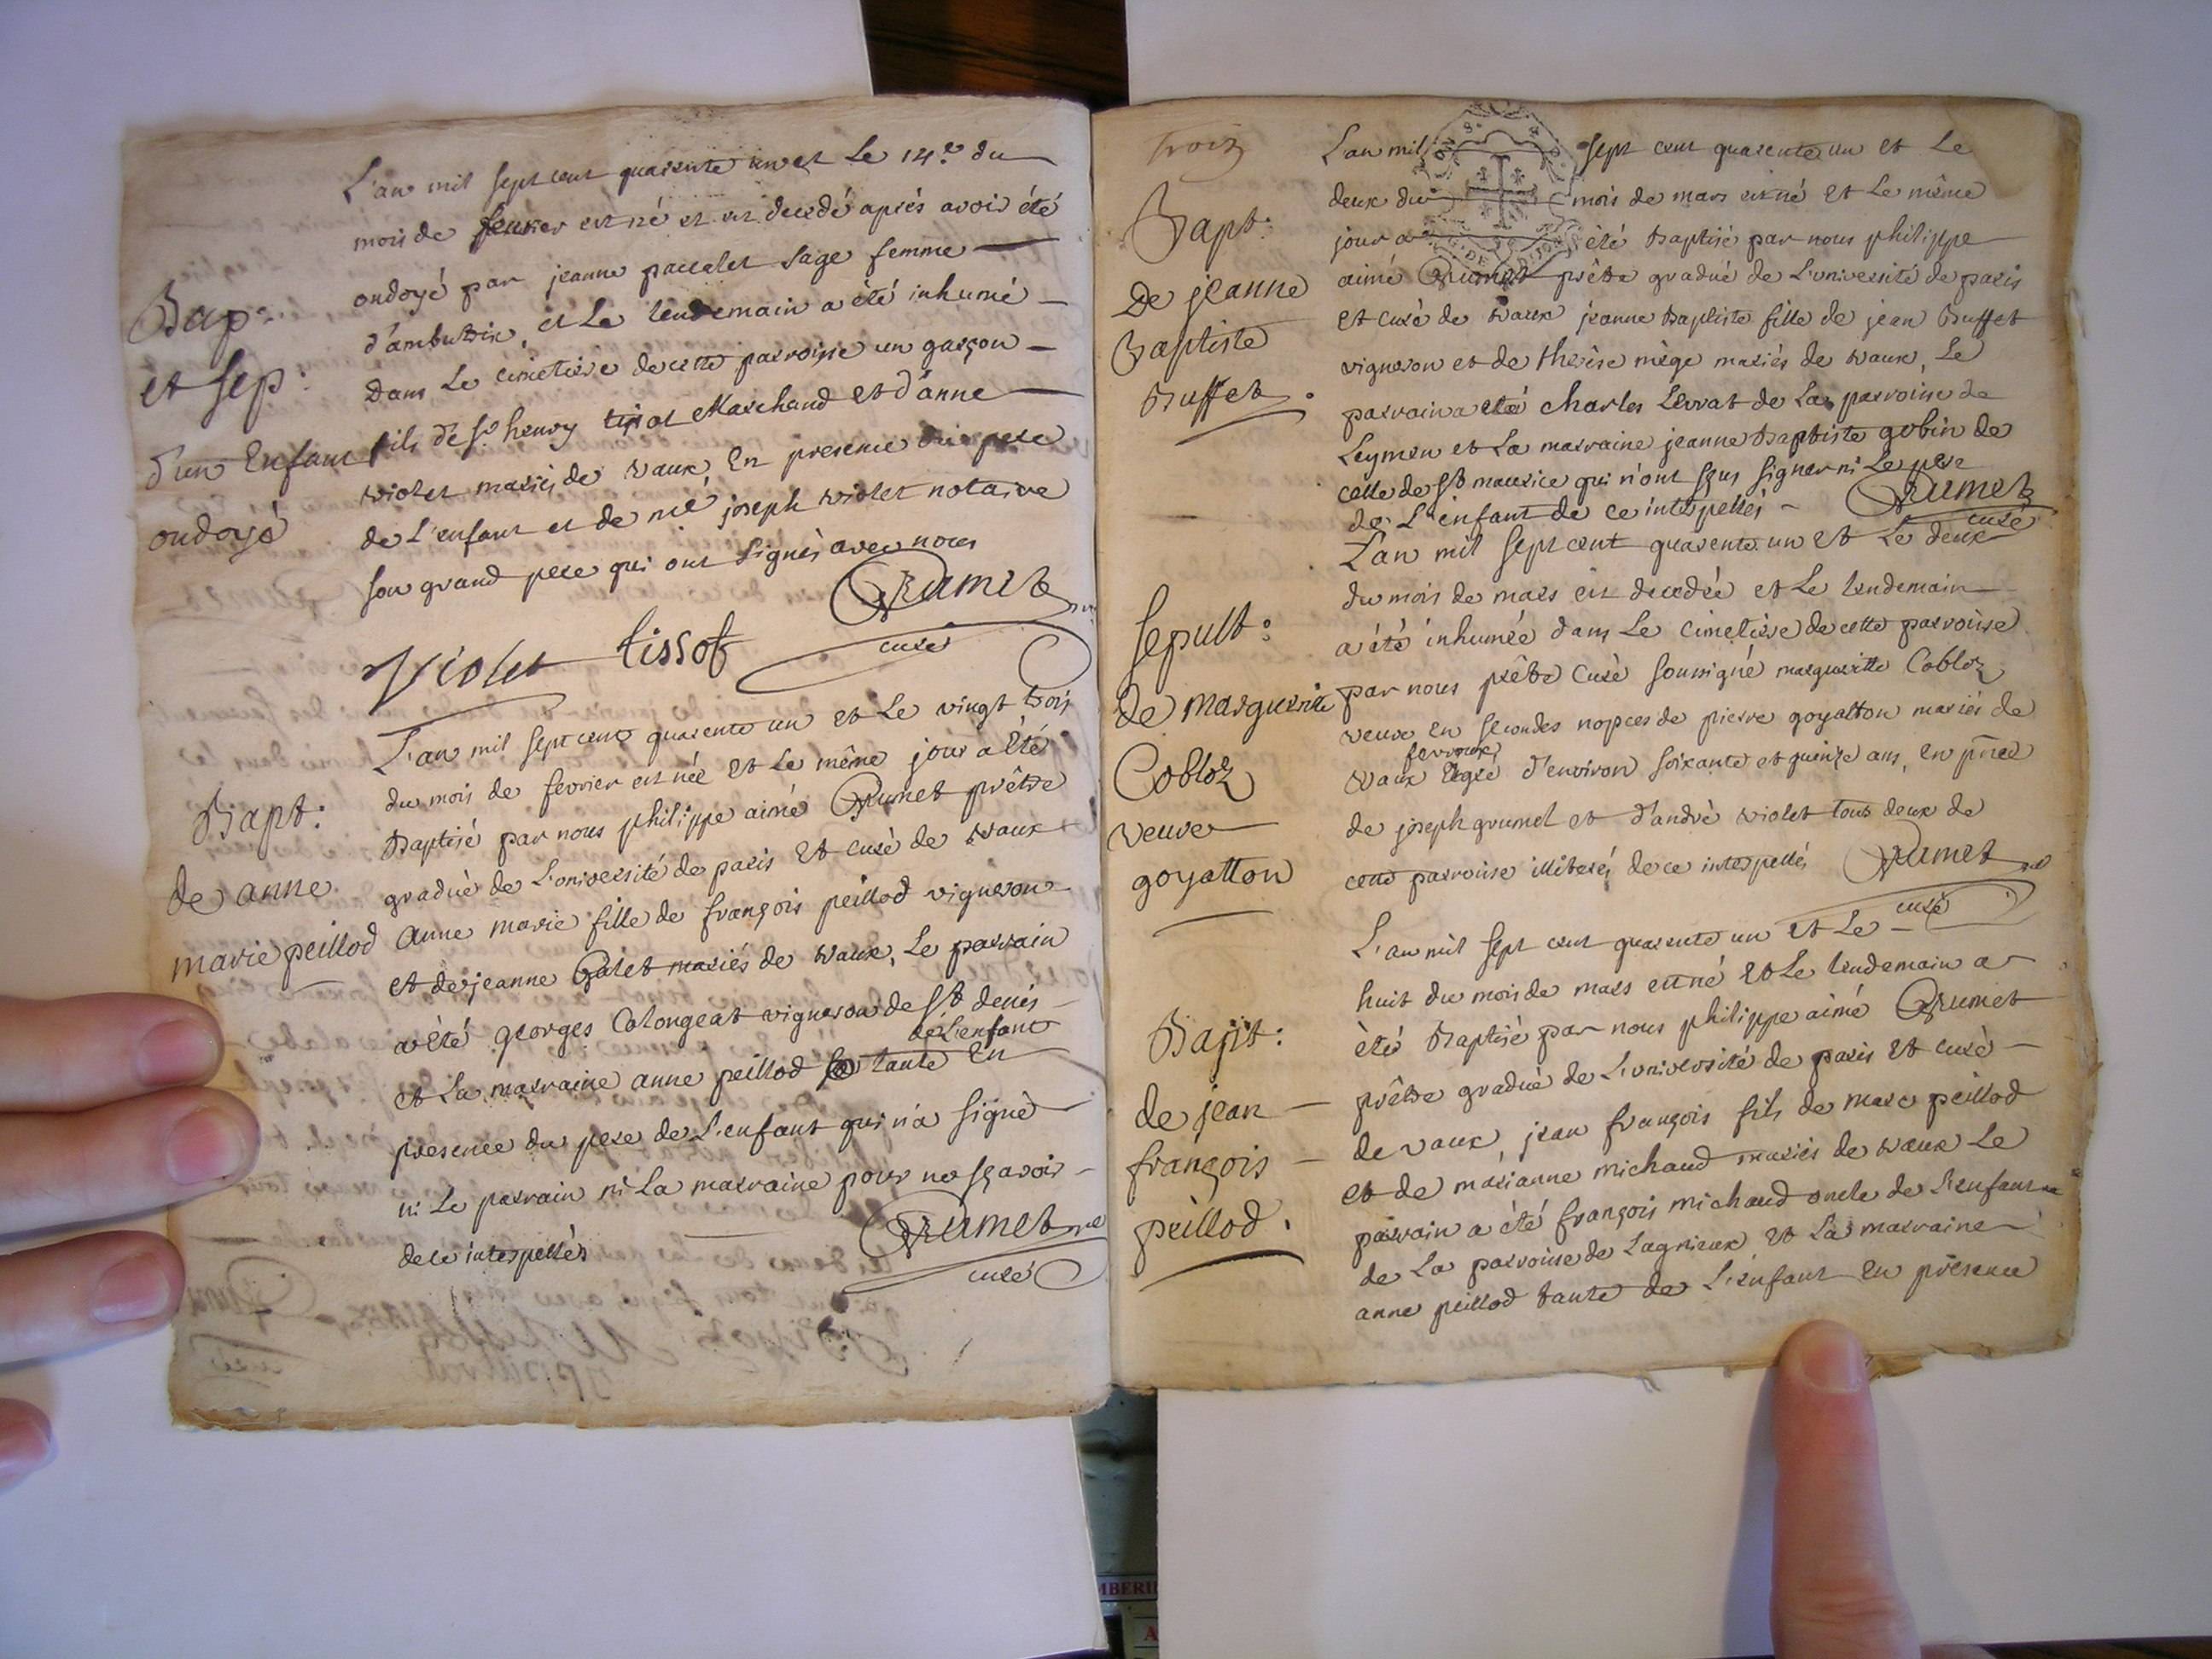 Bap.
et sep:
d'un Enfant
ondoyé
L'an mil sept cent quarente un et Le 14.e du
mois de fevrier est né et est decedé aprés avoir été
ondoyé par jeanne paccalet sage femme
d'ambutrix, et Le lendemain a été inhumé
dans Le cimetiere de cette parroisse un garçon
fils de Sr henry tissot Marchand et d'anne
violet mariés de vaux, En presence du pere
de L'enfant et de me joseph violet notaire
son grand pere qui ont signés avec nous
Grumet
curé
Violet tissot
Bapt:
de anne
marie peillod
L'an mil sept cent quarente un et Le vingt trois
du mois de fevrier est née Et Le même jour a Eté
Baptisé par nous philippe aimé Grumet prêtre
gradué de L'université de paris Et curé de vaux
anne marie fille de françois peillod vigneron
et de jeanne Galet mariés de vaux, Le parrain
a été georges Colongeat vigneron de St denis
de L'enfant
et La marraine anne peillod tante En
presence du pere de L'enfant qui n'a signé
ni Le parrain ni La marraine pour ne sçavoir
de ce interpellés
Grumet
curé
trois
Bapt:
De jeanne
Baptiste
Buffet
L'an mil sept cent quarente un et Le
deux du mois de mars est né et Le même
jour a été Baptisé par nous philippe
aimé Grumet prêtre gradué de L'université de paris
et curé de vaux jeanne Baptiste fille de jean Buffet
vigneron et de therèse mège mariés de vaux, Le
parrain a eté charles Levrat de La parroisse de
Leymen et La marraine jeanne Baptiste gobin de
celle de St maurice qui n'ont sçus signer ni Le pere
de L'enfant de ce interpellés
Grumet
curé
Sepult:
de marguerite
Cobloz
veuve
goyatton
L'an mil sept cent quarente un et Le deux
du mois de mars est decedée et Le lendemain
a été inhumée dans Le cimetiere de cette parroise
par nous prêtre Curé soussigné margueritte Cobloz
veuve En secondes nopces de pierre goyatton mariés de
vaux Agée d'environ soixante et quinze ans, en pnce
de joseph grumet et d'andré violet tous deux de
cette parroise illiterés de ce interpellés
Grumet
curé
Bapt:
de jean
françois
peillod.
L'an mil sept cent quarente un et Le
huit du mois de mars est né Et Le lendemain a
été Baptisé par nous philippe aimé Grumet
prêtre gradué de L'université de paris Et curé
de vaux, jean françois fils de marc peillod
et de marianne michaud mariés de vaux Le
parrain a été françois michaud oncle de L'enfant
de La parroise de Lagnieux, Et La marraine
anne peillod tante de L'enfant En présence